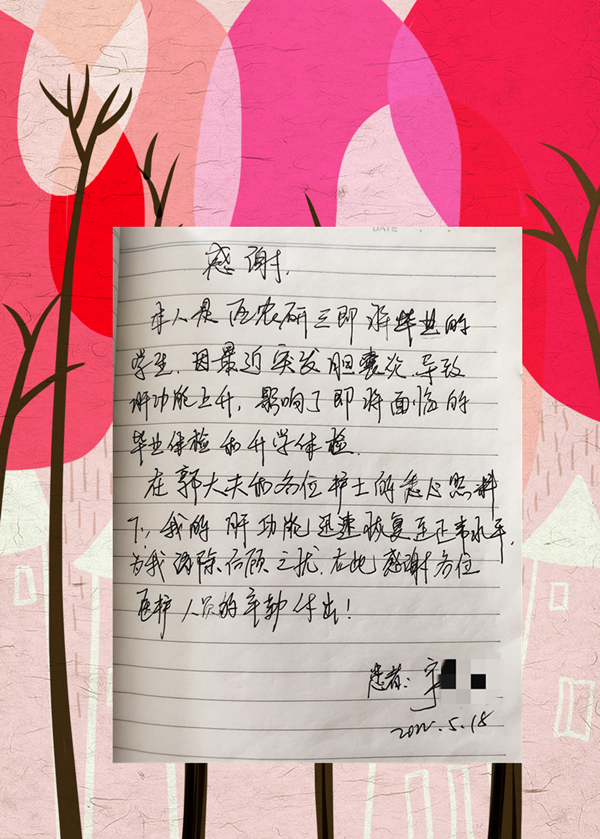 DATE
感谢.
本人是西农研三即将毕业的
学生.因最近突发胆囊炎.导致
肝功能上升,影响了即将面临的
毕业体检和升学体检.
在郭大夫和各位护士的悉心照料
下,我的肝功能迅速恢复至正常水平,
为我消除后顾之扰.在此感谢各位
医护人员的辛勤付出!
患者:宁
2022.5.18